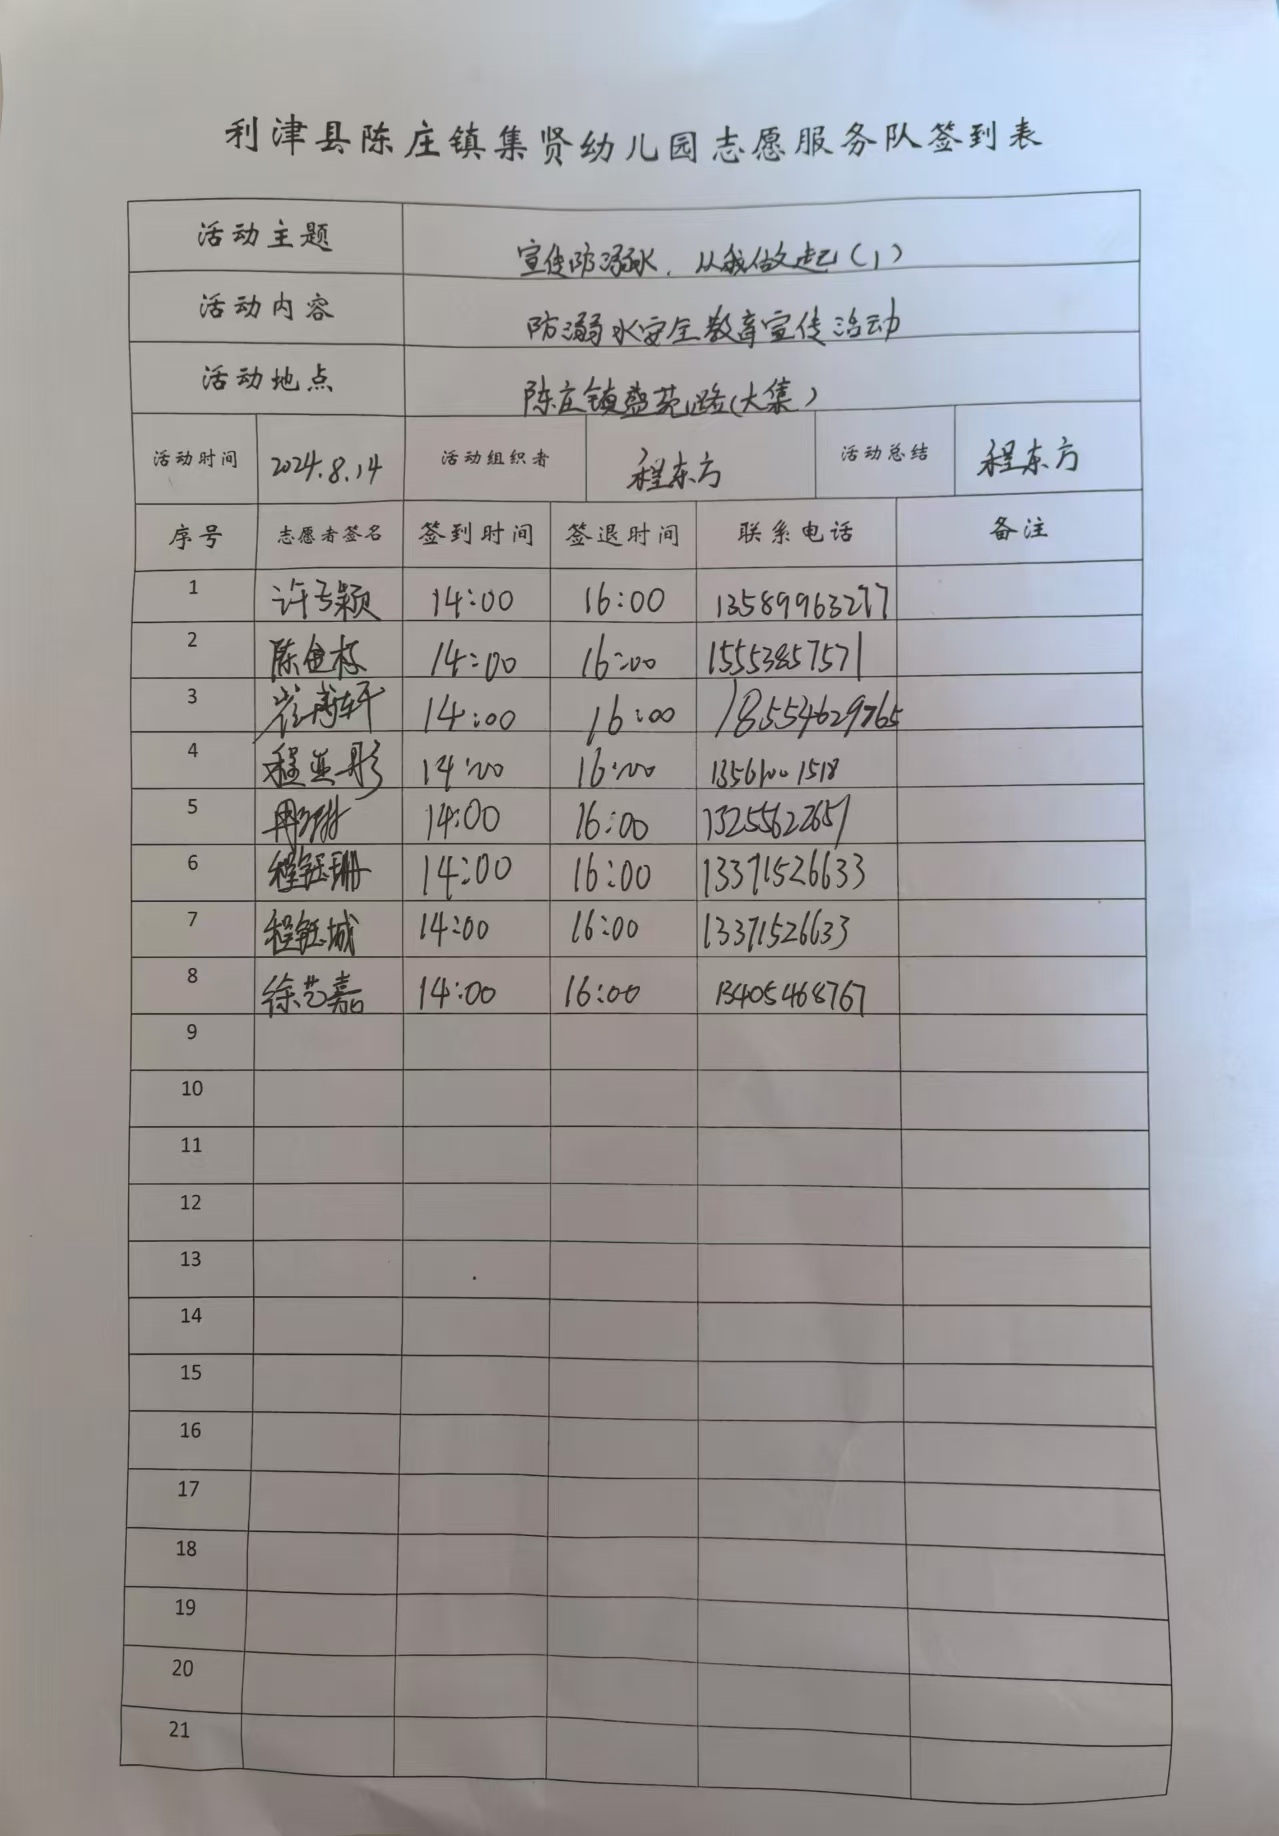 利津县陈庄镇集贤幼儿园志愿服务队签到表
活动主题 宣传防溺水，从我做起（1）
活动内容 防溺水安全教育宣传活动
活动地点 陈庄镇盛苑路（大集）
活动时间 2024.8.14 活动组织者 程东方 活动总结 程东方
序号 志愿者签名 签到时间 签退时间 联系电话 备注
1 许颖 14:00 16:00 13589963277
2 陈 14:00 16:00 15553857571
3 崔博轩 14:00 16:00 18554629765
4 程 彤 14:00 16:00 13561001518
5 14:00 16:00 13255622651
6 程钰珊 14:00 16:00 13371526633
7 程钰城 14:00 16:00 13371526633
8 徐艺嘉 14:00 16:00 13405468767
9
10
11
12
13
14
15
16
17
18
19
20
21